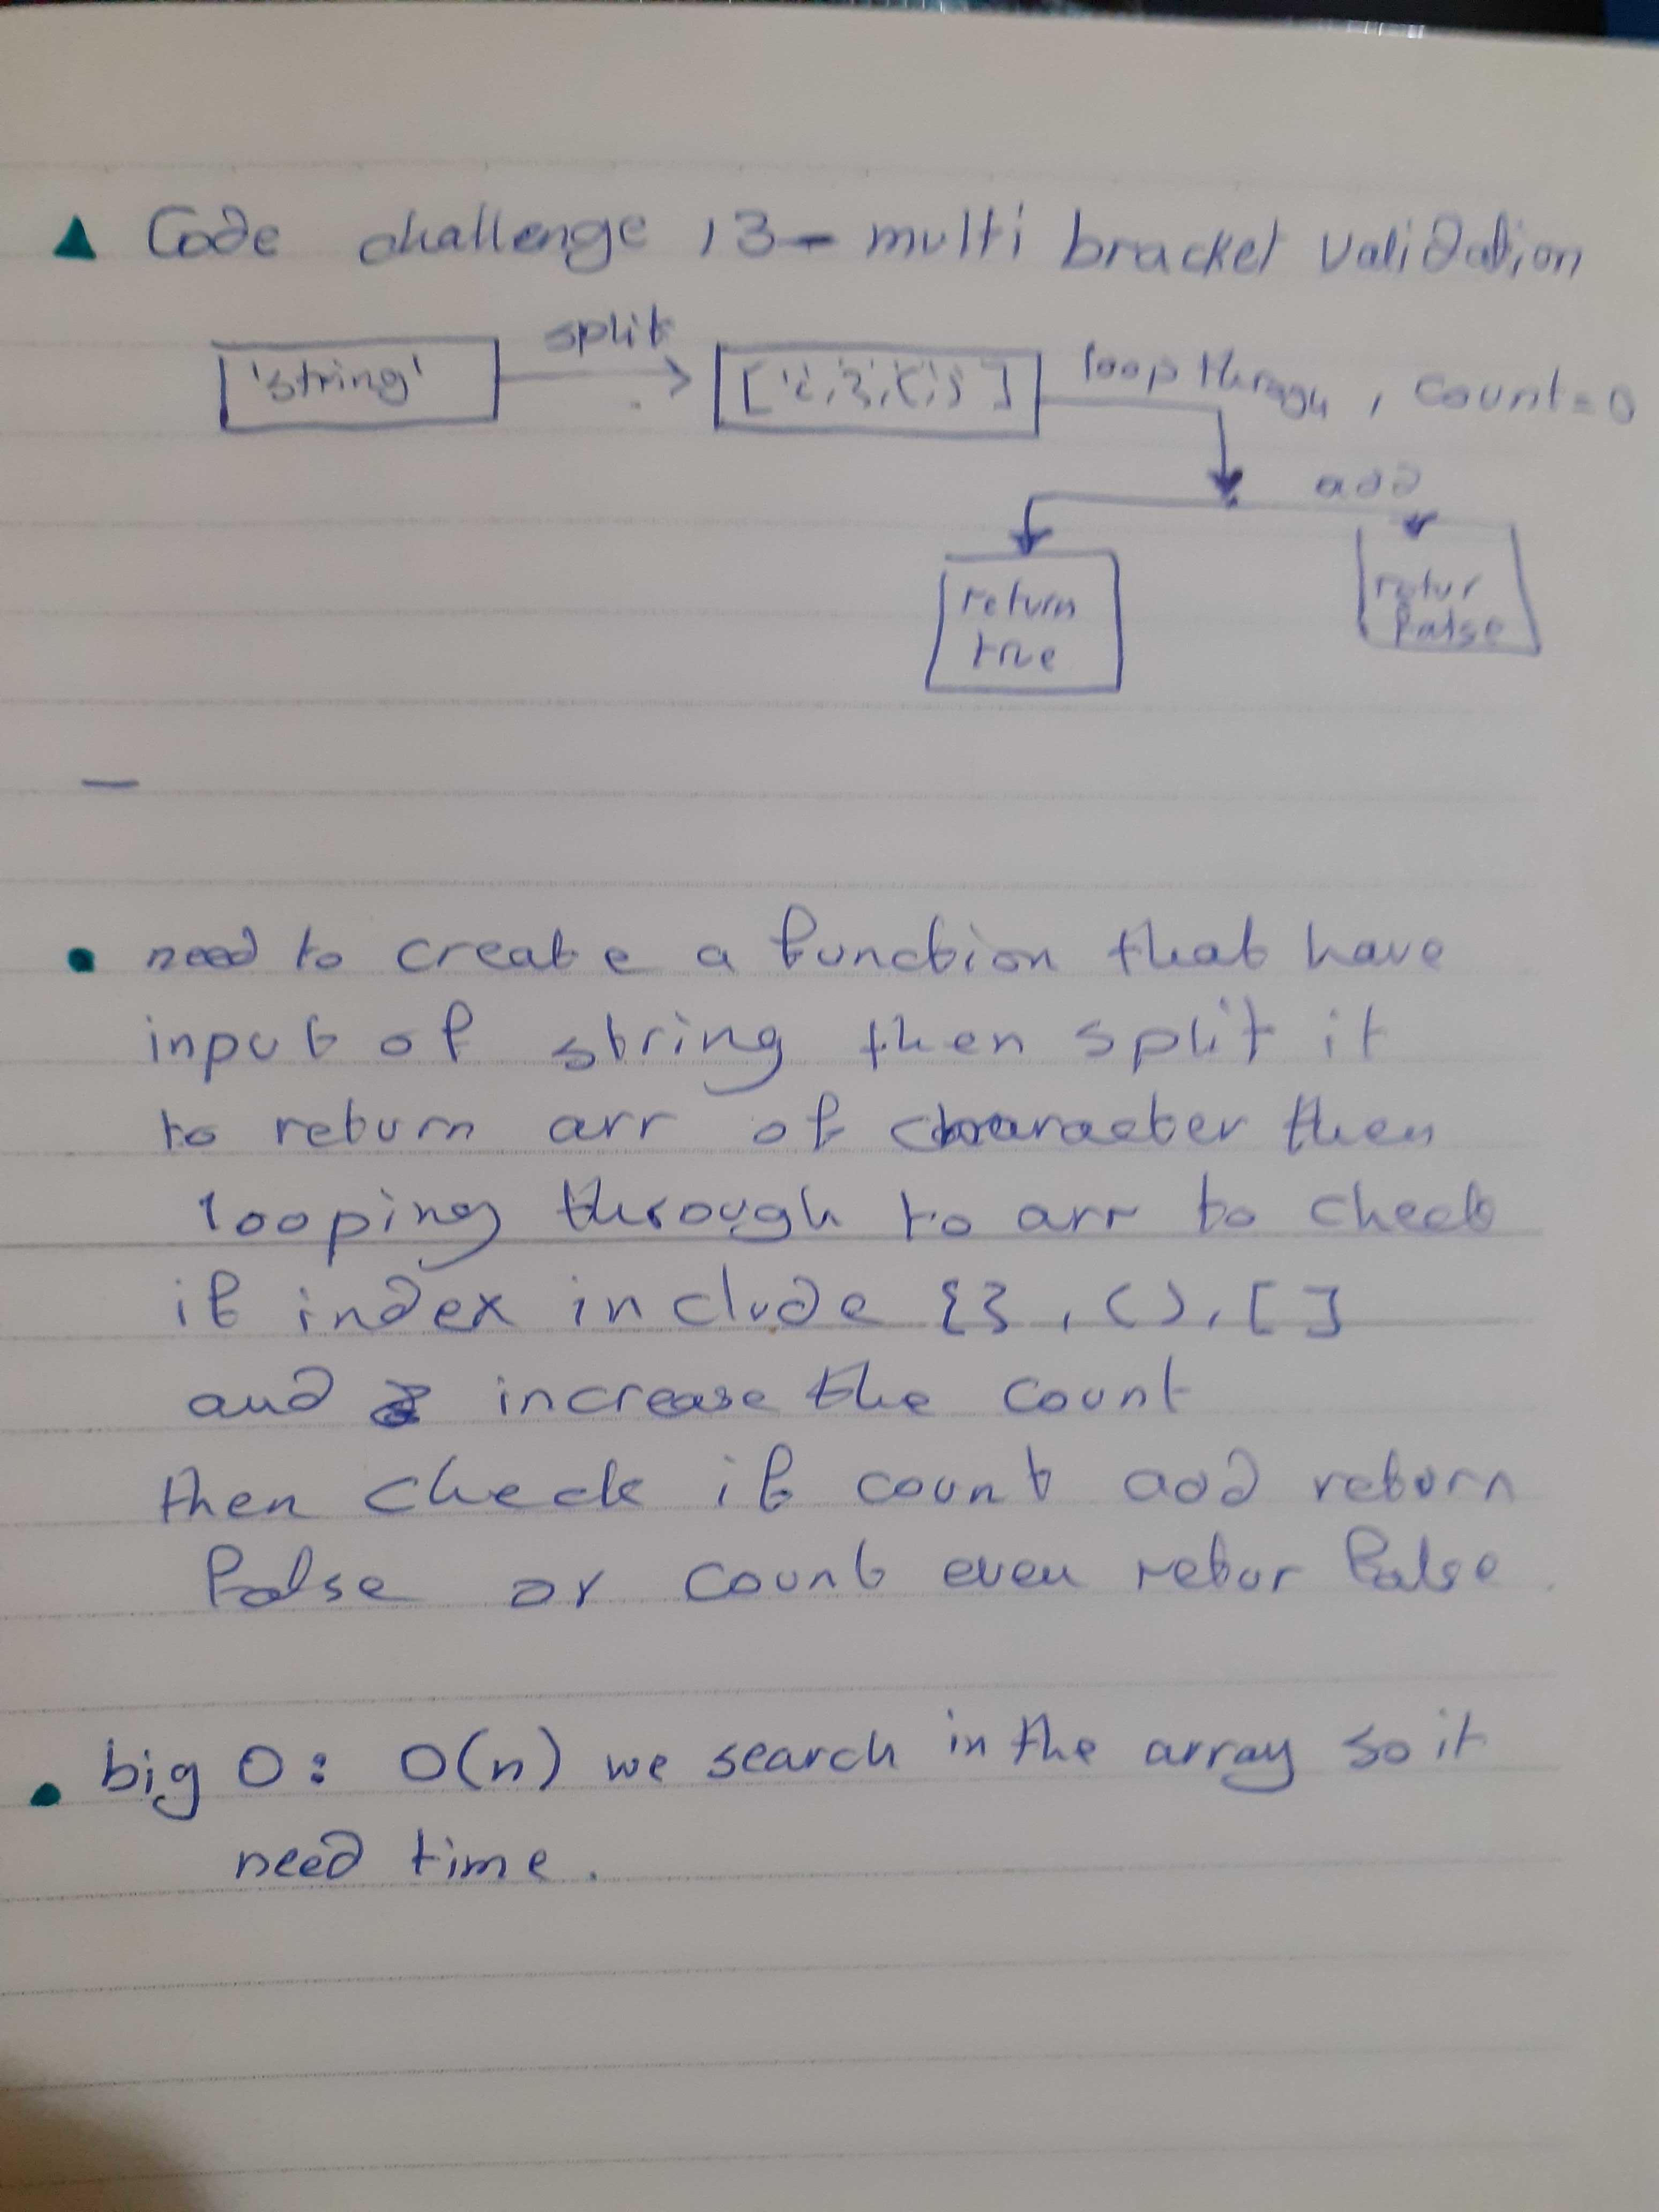 Code challenge 13 - multi bracket validation
'string'
split
loop through, count = 0
add
return
true
retur
false
need to create a function that have
input of string then split it
to return arr of character then
looping through to arr to check
if index include {}, (), []
and increase the count
then check if count add return
false or count even retur false.
big O: O(n) we search in the array so it
need time.